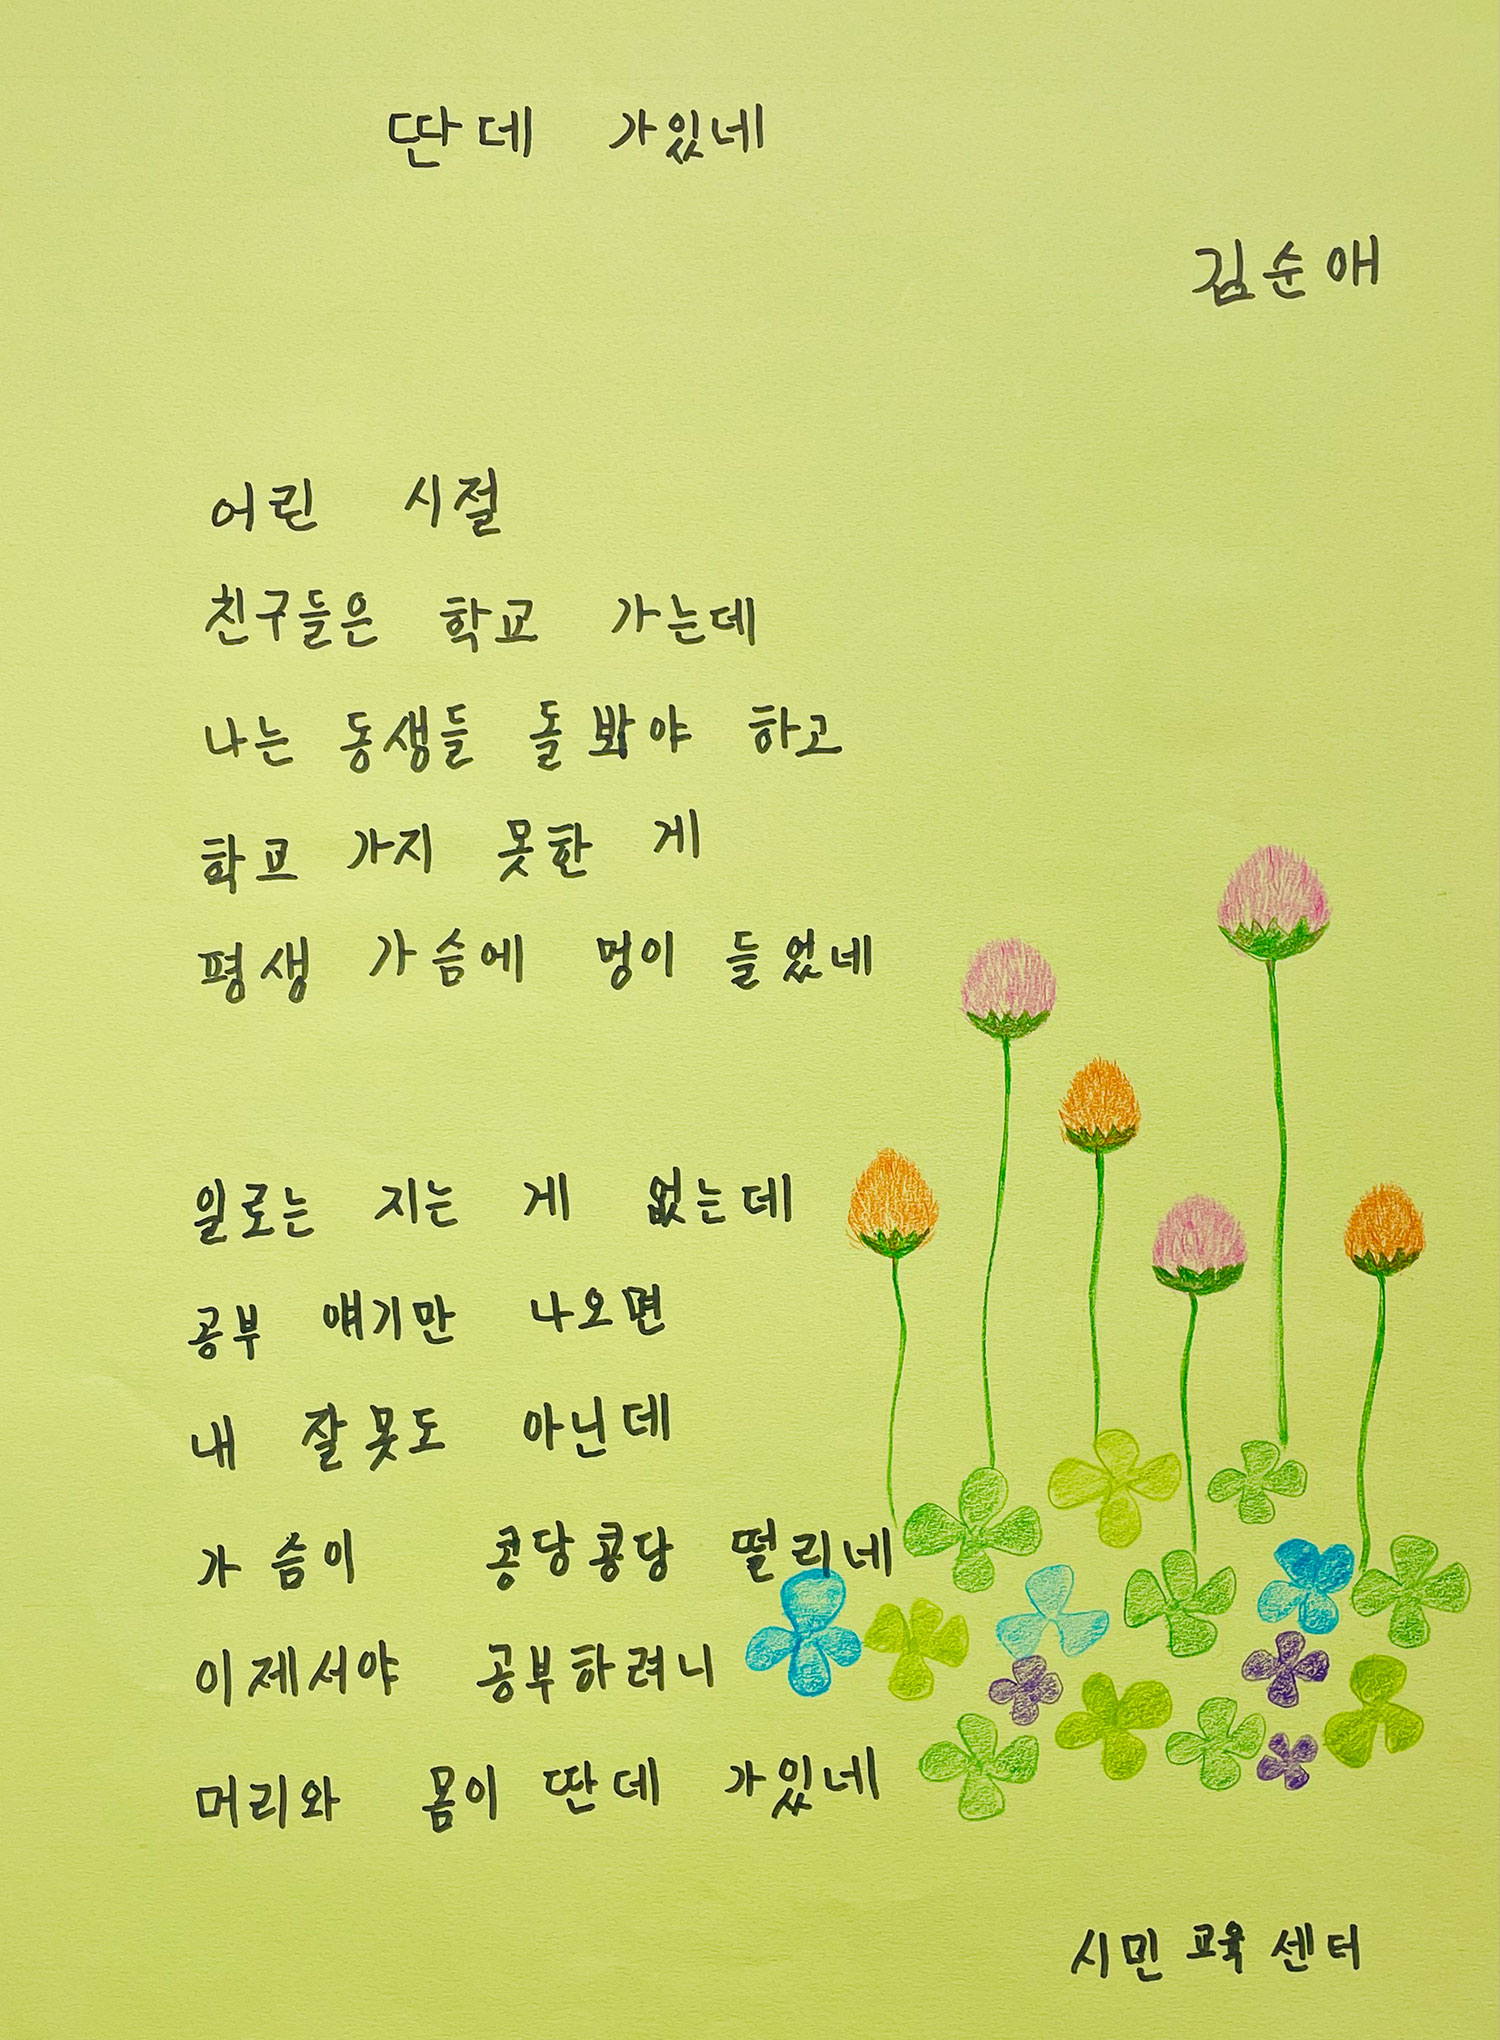 딴데 가있네
김순애
어린 시절
친구들은 학교 가는데
나는 동생들 돌봐야 하고
학교 가지 못한 게
평생 가슴에 멍이 들었네
일로는 지는 게 없는데
공부 얘기만 나오면
내 잘못도 아닌데
가슴이 콩당콩당 떨리네
이제서야 공부하려니
머리와 몸이 딴데 가있네
시민 교육 센터